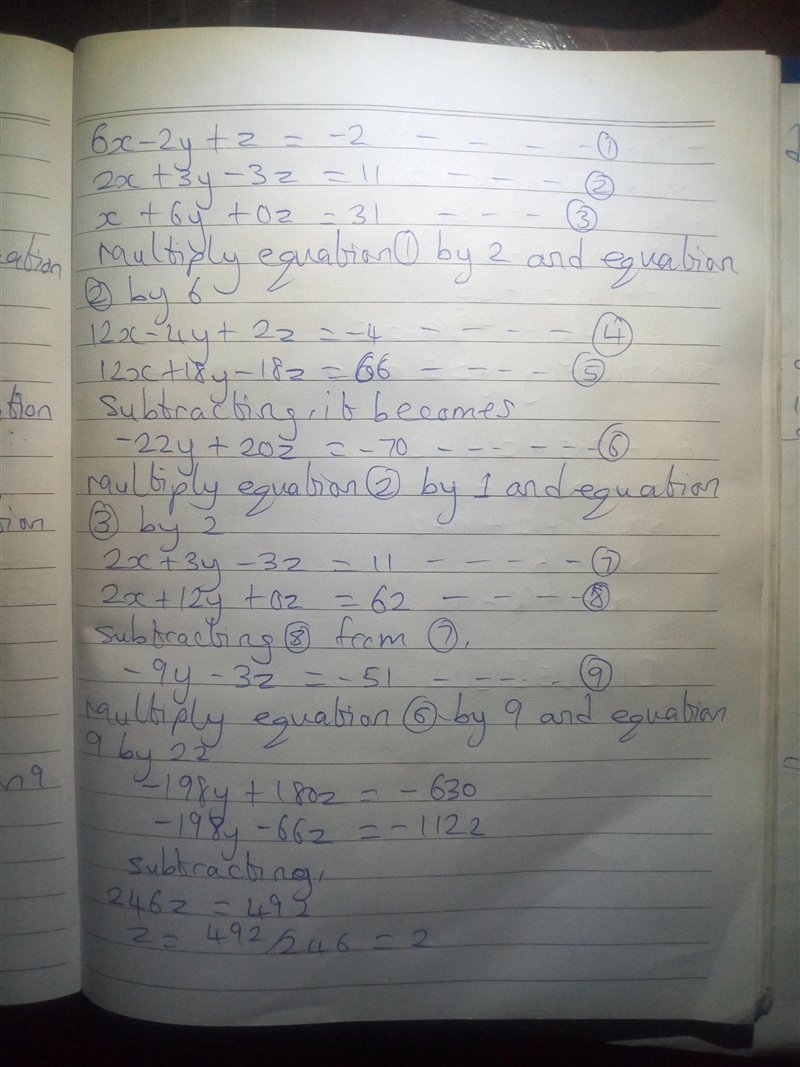 6x-2y+z = -2 - - - - ①
2x+3y-3z = 11 - - - - ②
x+6y+0z = 31 - - - - ③
multiply equation ① by 2 and equation
② by 6
12x-4y+2z = -4 - - - - - ④
12x+18y-18z = 66 - - - - ⑤
Subtracting, it becomes
-22y+20z = -70 - - - - - - ⑥
multiply equation ② by 1 and equation
③ by 2
2x+3y-3z = 11 - - - - - - ⑦
2x+12y+0z = 62 - - - - - ⑧
subtracting ⑧ from ⑦,
-9y-3z = -51 - - - - - ⑨
multiply equation ⑥ by 9 and equation
9 by 22
-198y+180z = -630
-198y-66z = -1122
subtracting,
246z = 492
z = 492/246 = 2
ation
tion
tion
n 9